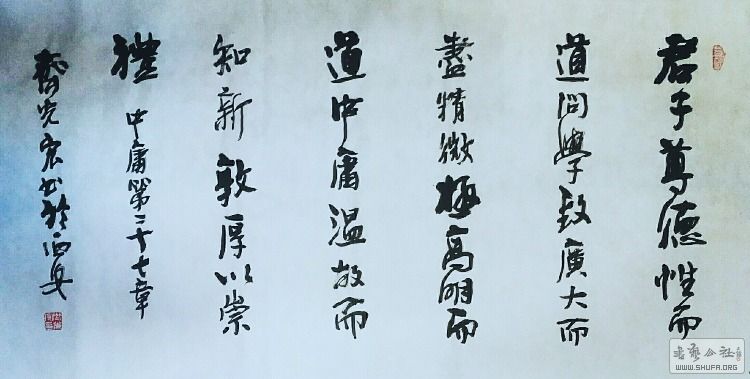 君子尊德性而
道问学致廣大而
盡精微極高明而
道中庸温故而
知新敦厚以崇
禮
中庸第二十七章
齊光宏书於西安
书艺公社
WWW.SHUFA.ORG